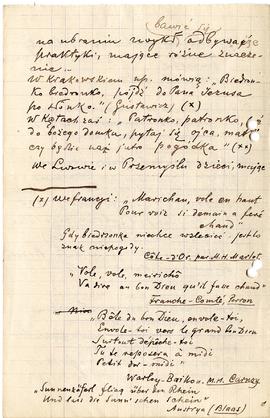 bawić się
na ubraniu zwykł odbywając
praktyki, mające różne znacze-
nie.
W Krakowskiem np. mówią: „Biedron-
ko biedronko, pójdź do Pana Jezusa
po słonko." (Gustawicz) (x)
W Kętach zaś: „Patronko, patronko,
do bożego domku, pytaj się ojca, mat
czy będzie naź jutro pogódka" (xx)
We Lwowie i w Przemyślu dzieci, mając
(x) We Francyi: „Marichau, vole en haut
Pour voir si demain a feré
chaud"
Gdy biedronka nie chce wzlecieć jest to
znak niepogody.
Côte-d'Or. par M. H. Marlot
„Vole, vole, meirichó
Va dire au bon Dieu qu'il fase chaud"
Franche-Comté, Perron
„Bête du bon Dieu, envole-toi,
Envole-toi vers le grand bon Dieu
Surtout dépêche-toi
Tu te reposera à midi
Petit dor-midi"
Warloy-Baillon, M. H. Carnoy
„Sunnenkäferl flieg über den Rhein
Und lass die Sunn' schen schein"
Austrya (Blaas)